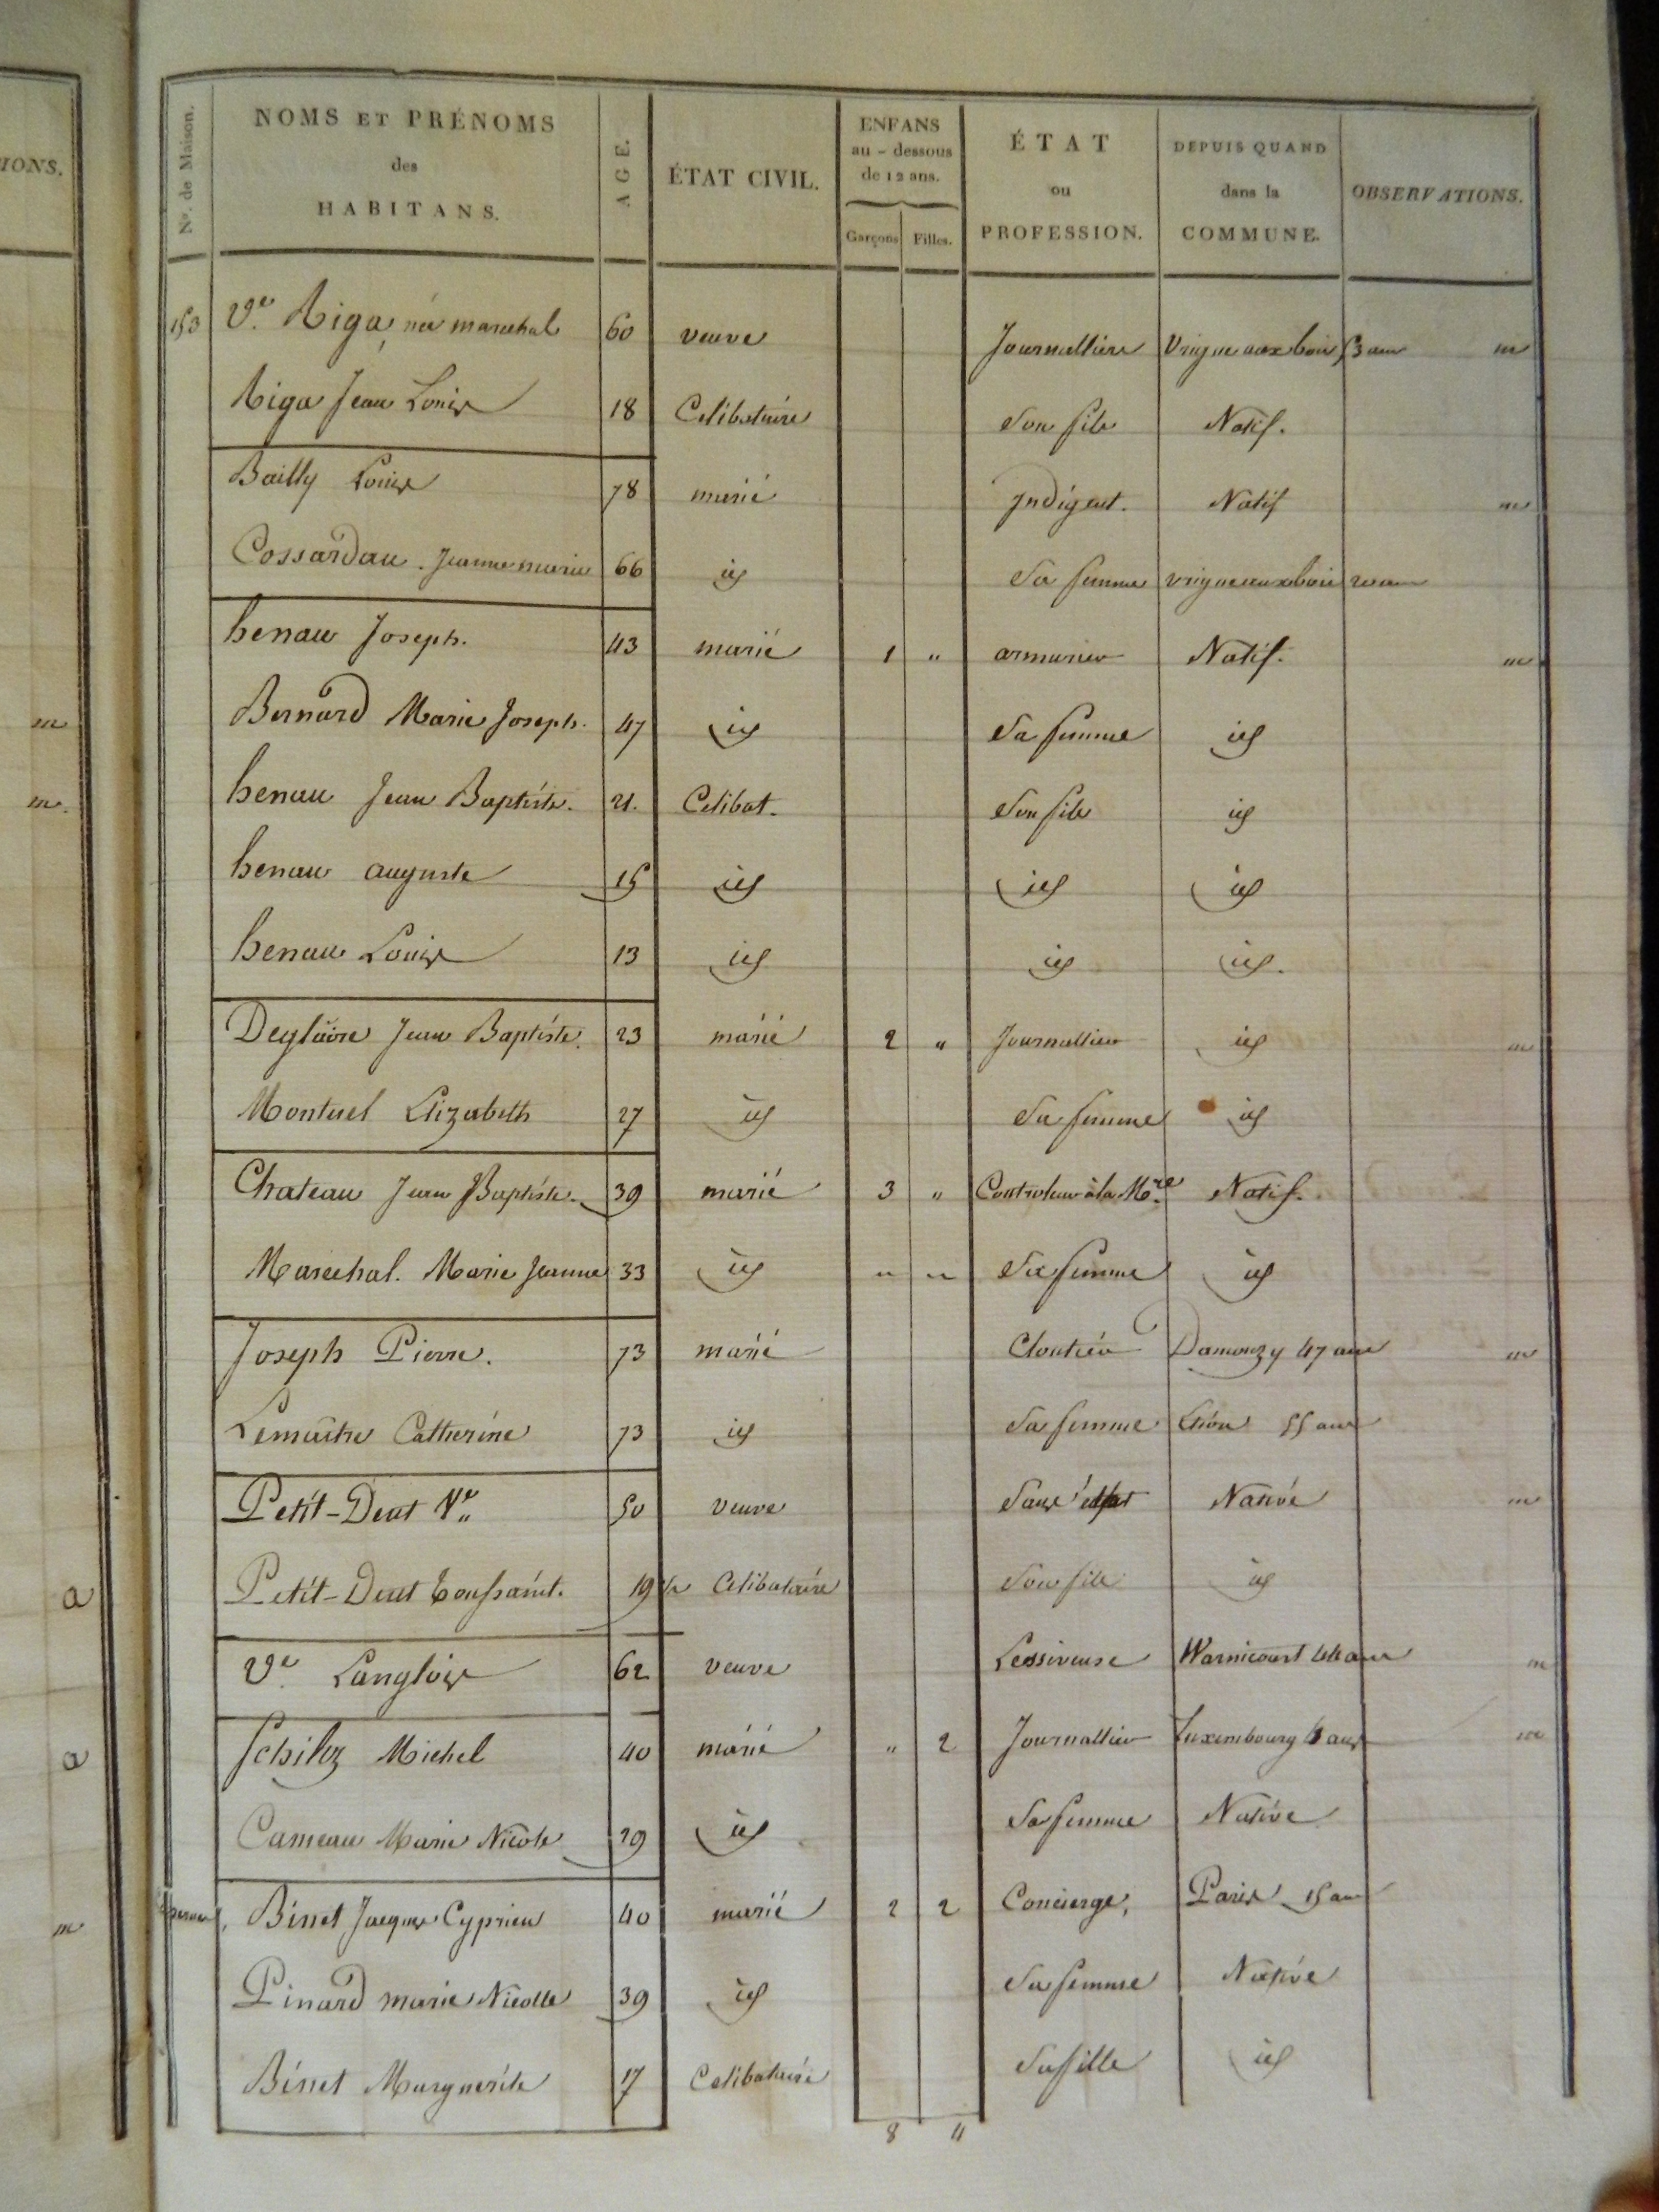 IONS.
m
m.
a
a
m
No. de Maison.
NOMS ET PRÉNOMS
des
HABITANS.
AGE.
ÉTAT CIVIL.
ENFANS
au - dessous
de 12 ans.
Garçons Filles.
ÉTAT
ou
PROFESSION.
DEPUIS QUAND
dans la
COMMUNE.
OBSERVATIONS.
153 Ve. Riga, née marechal 60 veuve Journalliere Vrigne aux bois 53 ans m
Riga Jean Louis 18 Celibataire Son fils Natif.
Bailly Louis 78 marié Indigent. Natif m
Cossardau. Jeanne marie 66 id Sa femme vrigne aux bois
henau Joseph. 43 marié 1 " armurier Natif. m
Bernard Marie Joseph. 47 id Sa femme id
henau Jean Baptiste. 21. Celibat. Son fils id
henau auguste 15 id id id
henau Louis 13 id id id.
Deglaire Jean Baptiste. 23 marié 2 " Journallier id m
Montuel Elizabeth 27 id Sa femme id
Chateau Jean Baptiste. 39 marié 3 " Controleur à la Mre. Natif.
Marechal. Marie Jeanne 33 id " " Sa femme id
Joseph Pierre. 73 marié Cloutier Damouzy 47 ans m
Lemaitre Catherine 73 id Sa femme 55 ans
Petit-Dent Ve 50 veuve Sans état Native m
Petit-Dent Toussaint. 19 Celibataire Son fils id
Ve. Langlois 62 veuve Lessiveuse Warnicourt 44 ans m
Schiltz Michel 40 marié " 2 Journallier Luxembourg ans m
Cameau Marie Nicole 29 id Sa femme Native
Binet Jacques Cyprien 40 marié 2 2 Concierge, Paris 15 ans
Pinard marie Nicolle 39 id Sa femme Native
Binet Marguerite 17 Celibataire Sa fille id
8 4